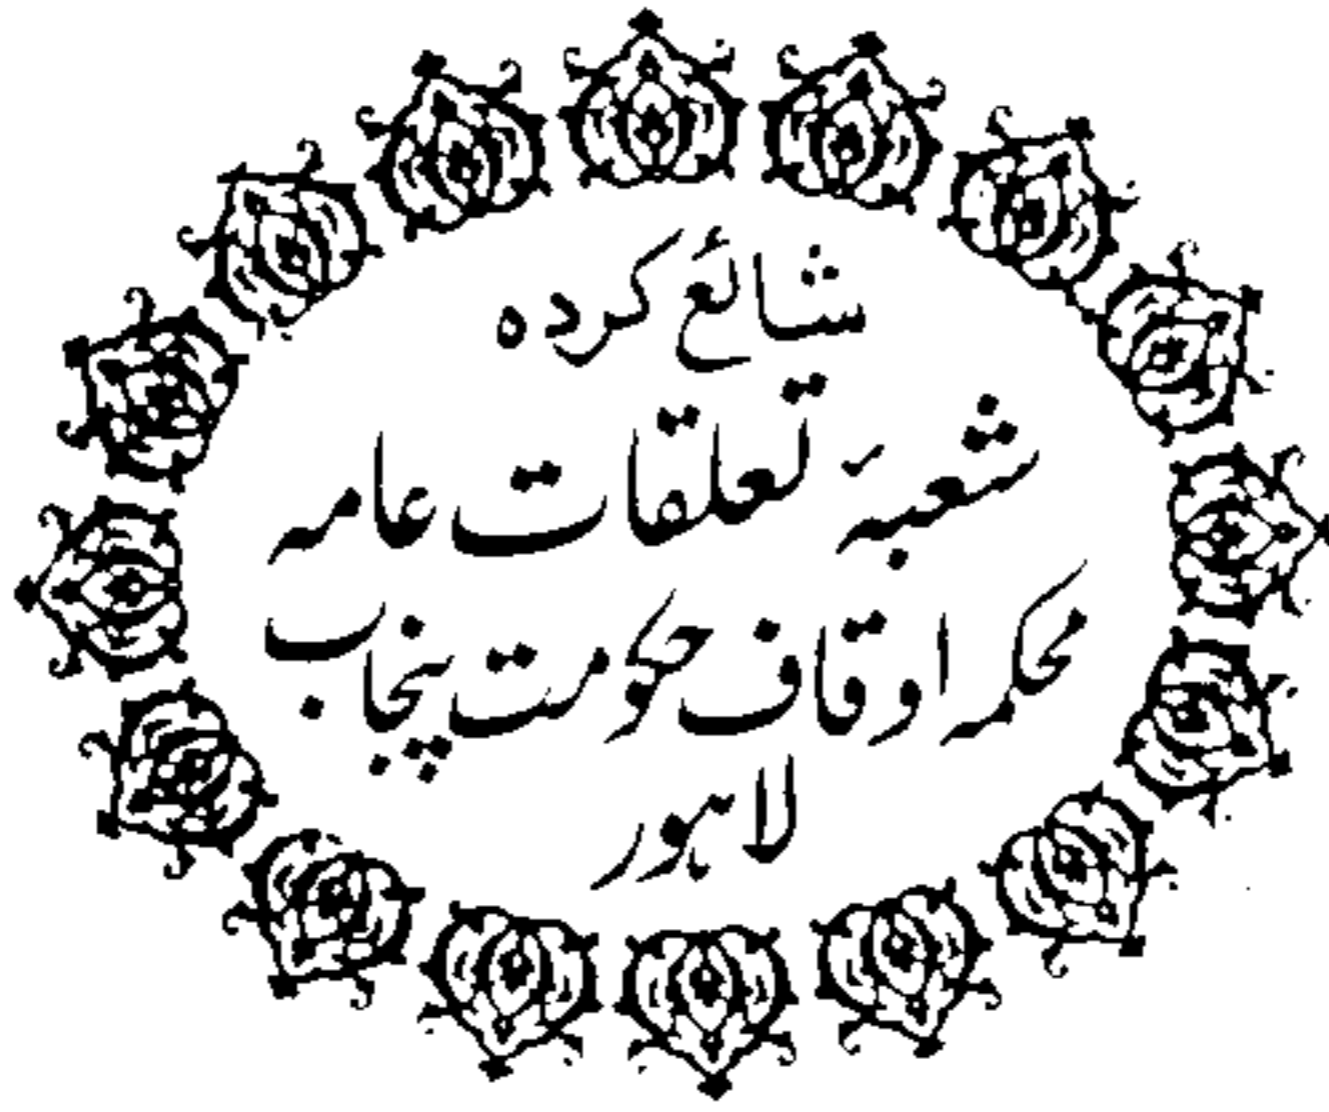 شائع کردہ
شعبۂ تعلقات عامہ
محکمہ اوقاف حکومت پنجاب
لاہور